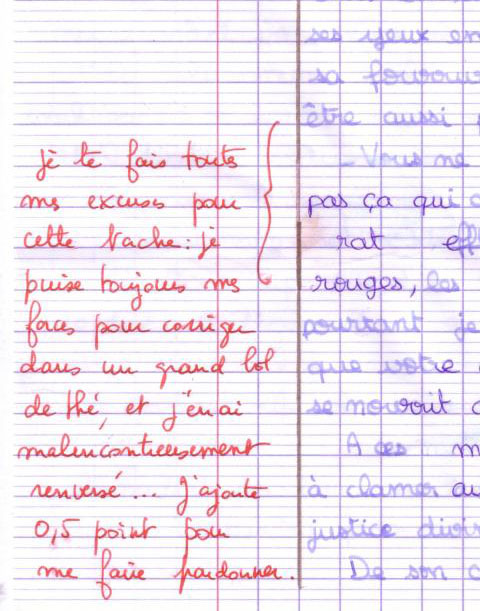 je te fais toutes
mes excuses pour
cette tache : je
puise toujours mes
forces pour corriger
dans un grand bol
de thé, et j'en ai
malencontreusement
renversé... J'ajoute
0,5 point pour
me faire pardonner.
ses yeux en
sa
être aussi
- Vous ne
pas ça qui
rat eff
rouges, les
pourtant je
que votre
se nourrit
A ces m
à clamer au
justice divi
De son c